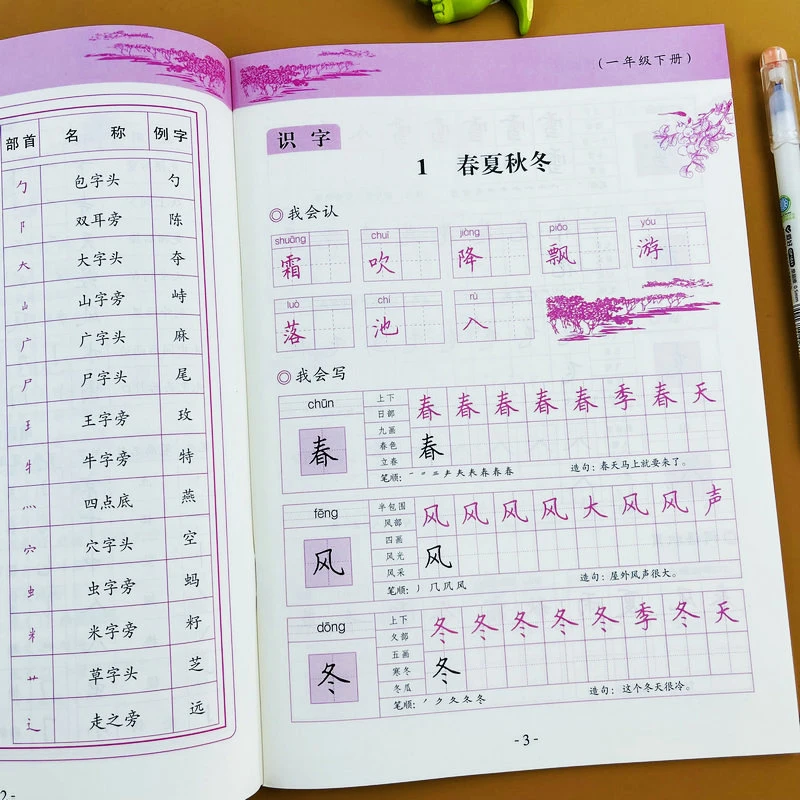 部首 名称 例字
勹 包字头 勺
阝 双耳旁 陈
大 大字头 夺
山 山字旁 峙
广 广字头 麻
尸 尸字头 尾
王 王字旁 玫
牜 牛字旁 特
灬 四点底 燕
穴 穴字头 空
虫 虫字旁 蚂
米 米字旁 籽
艹 草字头 芝
辶 走之旁 远
(一年级下册)
识字
1 春夏秋冬
◎我会认
shuāng chuī jiàng piāo yóu
霜 吹 降 飘 游
luò chí rù
落 池 入
◎我会写
chūn
春
上下
日部
九画
春色
立春
春 春 春 春 春 季 春 天
春
笔顺:
造句:春天马上就要来了。
fēng
风
半包围
风部
四画
风光
风采
风 风 风 风 大 风 风 声
风
笔顺:丿 几 凤 风
造句:屋外风声很大。
dōng
冬
上下
夂部
五画
寒冬
冬瓜
冬 冬 冬 冬 冬 季 冬 天
冬
笔顺:丿 ク 夂 冬 冬
造句:这个冬天很冷。
-3-